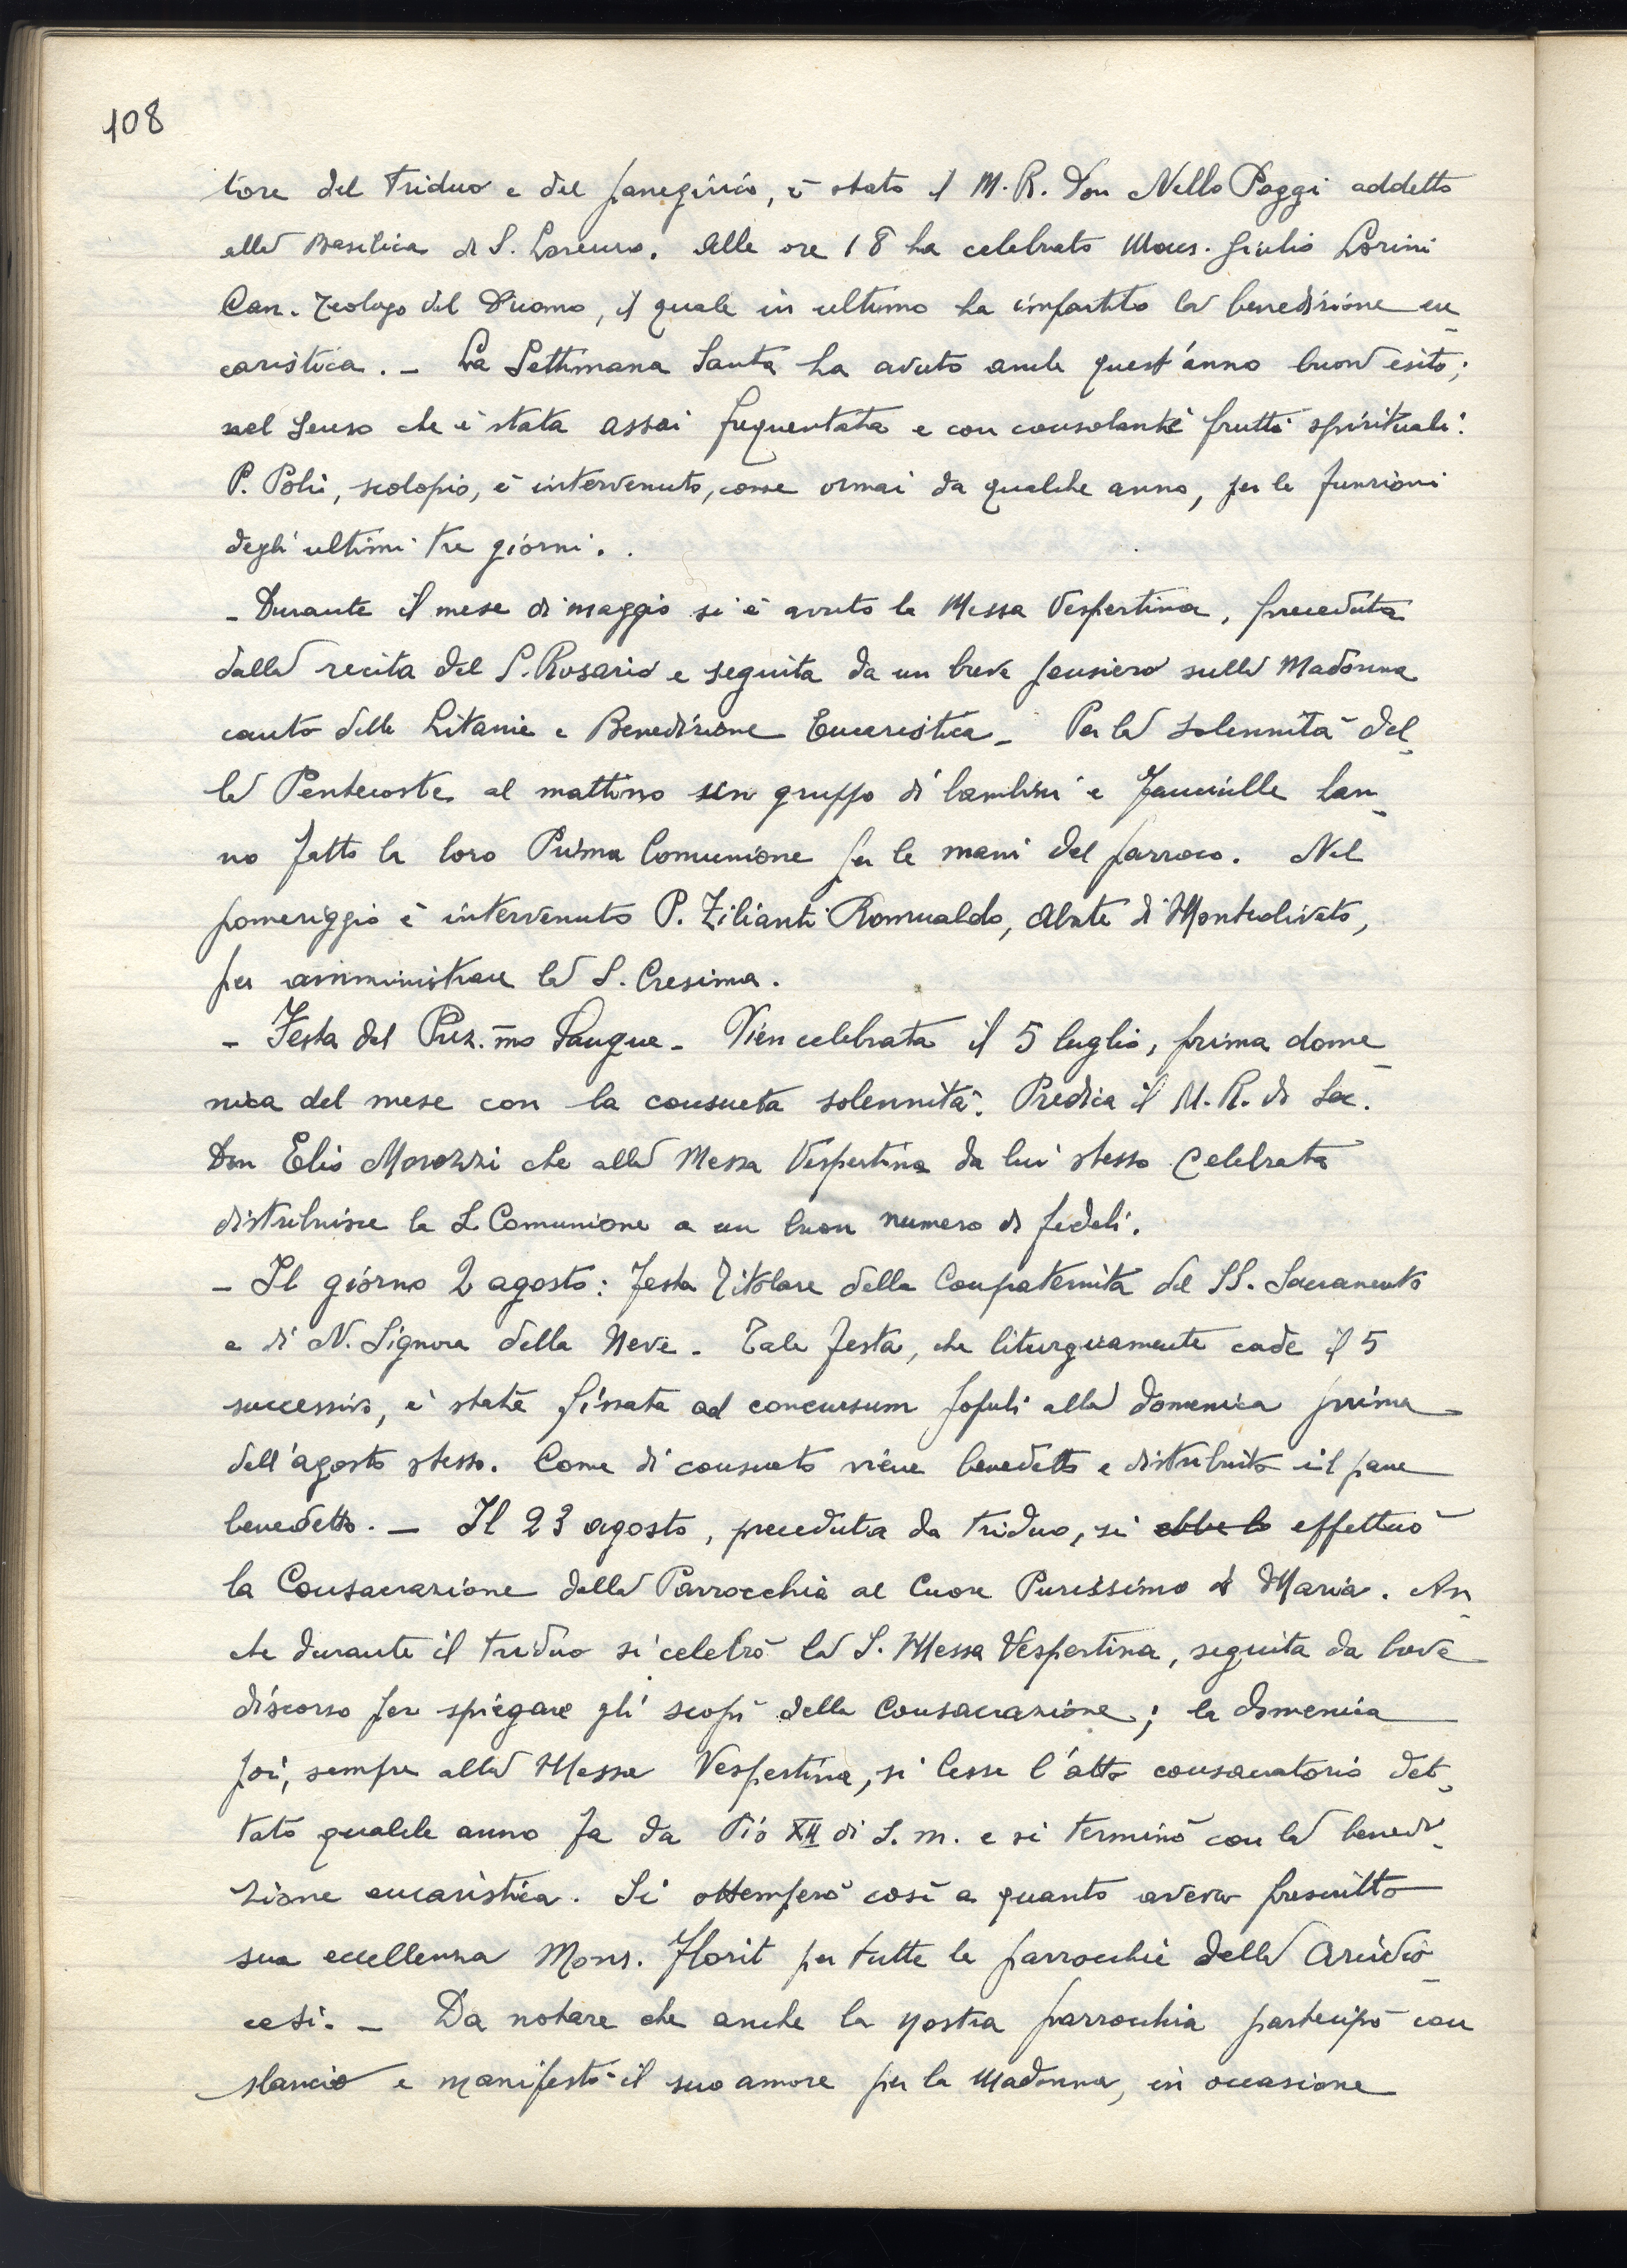 108
tore del Triduo e del panegirico, è stato il M. R. Don Nello Poggi addetto
alla Basilica di S. Lorenzo. Alle ore 18 ha celebrato Mons. Giulio Lorini
Can. Teologo del Duomo, il quale in ultimo ha impartito la benedizione eu-
caristica. - La Settimana Santa ha avuto anche quest'anno buon esito;
nel senso che è stata assai frequentata e con consolanti frutti spirituali.
P. Poli, scolopio, è intervenuto, come ormai da qualche anno, per le funzioni
degli ultimi tre giorni.
- Durante il mese di maggio si è avuto la Messa Vespertina, preceduta
dalla recita del S. Rosario e seguita da un breve pensiero sulla Madonna
canto delle Litanie e Benedizione Eucaristica - Per la solennità del-
la Pentecoste al mattino un gruppo di bambini e fanciulle han-
no fatto la loro Prima Comunione per le mani del parroco. Nel
pomeriggio è intervenuto P. Zilianti Romualdo, Abate di Monteoliveto,
per amministrare la S. Cresima.
- Festa del Prez.mo Sangue - Vien celebrata il 5 luglio, prima dome-
nica del mese con la consueta solennità. Predica il M. R. di Sac.
Don Elio Morozzi che alla Messa Vespertina da lui stesso celebrata
distribuisce la S. Comunione a un buon numero di fedeli.
- Il giorno 2 agosto: festa Titolare della Confraternita del SS. Sacramento
e di N. Signora della Neve. Tale festa, che liturgicamente cade il 5
successivo, è stata fissata ad concursum populi alla domenica prima
dell'agosto stesso. Come di consueto viene benedetto e distribuito il pane
benedetto. - Il 23 agosto, preceduta da triduo, si ebbe la effettuò
la Consacrazione della Parrocchia al Cuore Purissimo di Maria. An-
che durante il triduo si celebrò la S. Messa Vespertina, seguita da breve
discorso per spiegare gli scopi della Consacrazione; la domenica
poi, sempre alla Messa Vespertina, si lesse l'atto consacratorio det-
tato qualche anno fa da Pio XII di S. m. e si terminò con la benedi-
zione eucaristica. Si ottemperò così a quanto aveva prescritto
sua eccellenza Mons. Florit per tutte le parrocchie della Arcidio-
cesi. - Da notare che anche la nostra parrocchia partecipò con
slancio e manifestò il suo amore per la Madonna, in occasione